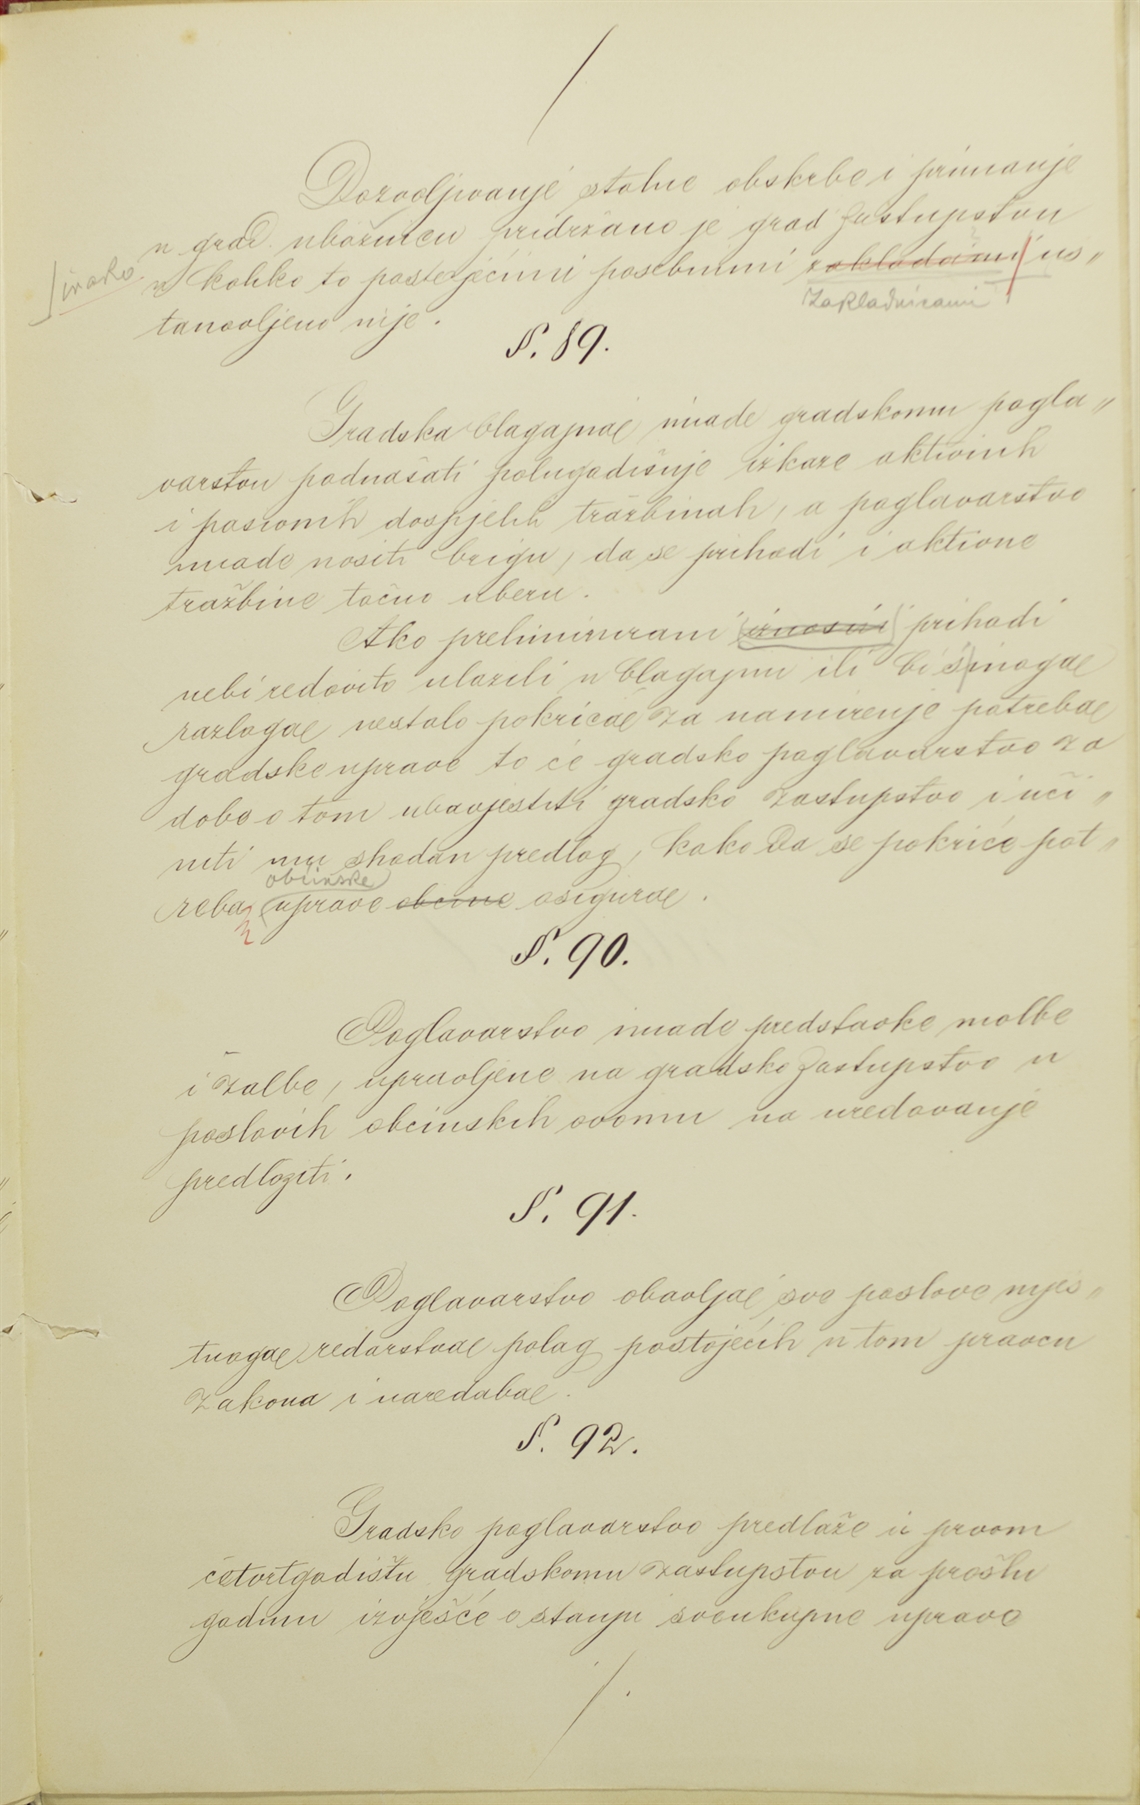 Dozvoljivanje stalne obskrbe i primanje
u grad. ubožnicu pridržano je grad zastupstvu
inako
u koliko to postojećimi posebnimi zakladami us„
zakladnicami
tanovljeno nije.
§. 89.
Gradska blagajna imade gradskomu pogla„
varstvu podnašati polugodišnje izkaze aktivnih
i pasivnih dospjelih tražbinah, a poglavarstvo
imade nositi brigu, da se prihodi i aktivne
tražbine točno uberu.
Ako preliminirani iznosni prihodi
nebi redovito ulazili u blagajnu ili bi s inoga
razloga nestalo pokrića za namirenje potreba
gradske uprave to će gradsko poglavarstvo za
dobe o tom ubavjestiti gradsko zastupstvo i uči„
niti mu shodan predlog, kako da se pokriće pot„
obćinske
reba uprave obćine osigura.
§. 90.
Poglavarstvo imade predstavke molbe
i žalbe, upravljene na gradsko zastupstvo u
poslovih obćinskih ovomu na uredovanje
predložiti.
§. 91.
Poglavarstvo obavlja sve poslove mjes„
tnoga redarstva polag postojećih u tom pravcu
zakona i naredaba.
§. 92.
Gradsko poglavarstvo predlaže u prvom
četvrtgodištu gradskomu zastupstvu za prošlu
godinu izvješće o stanju sveukupne uprave